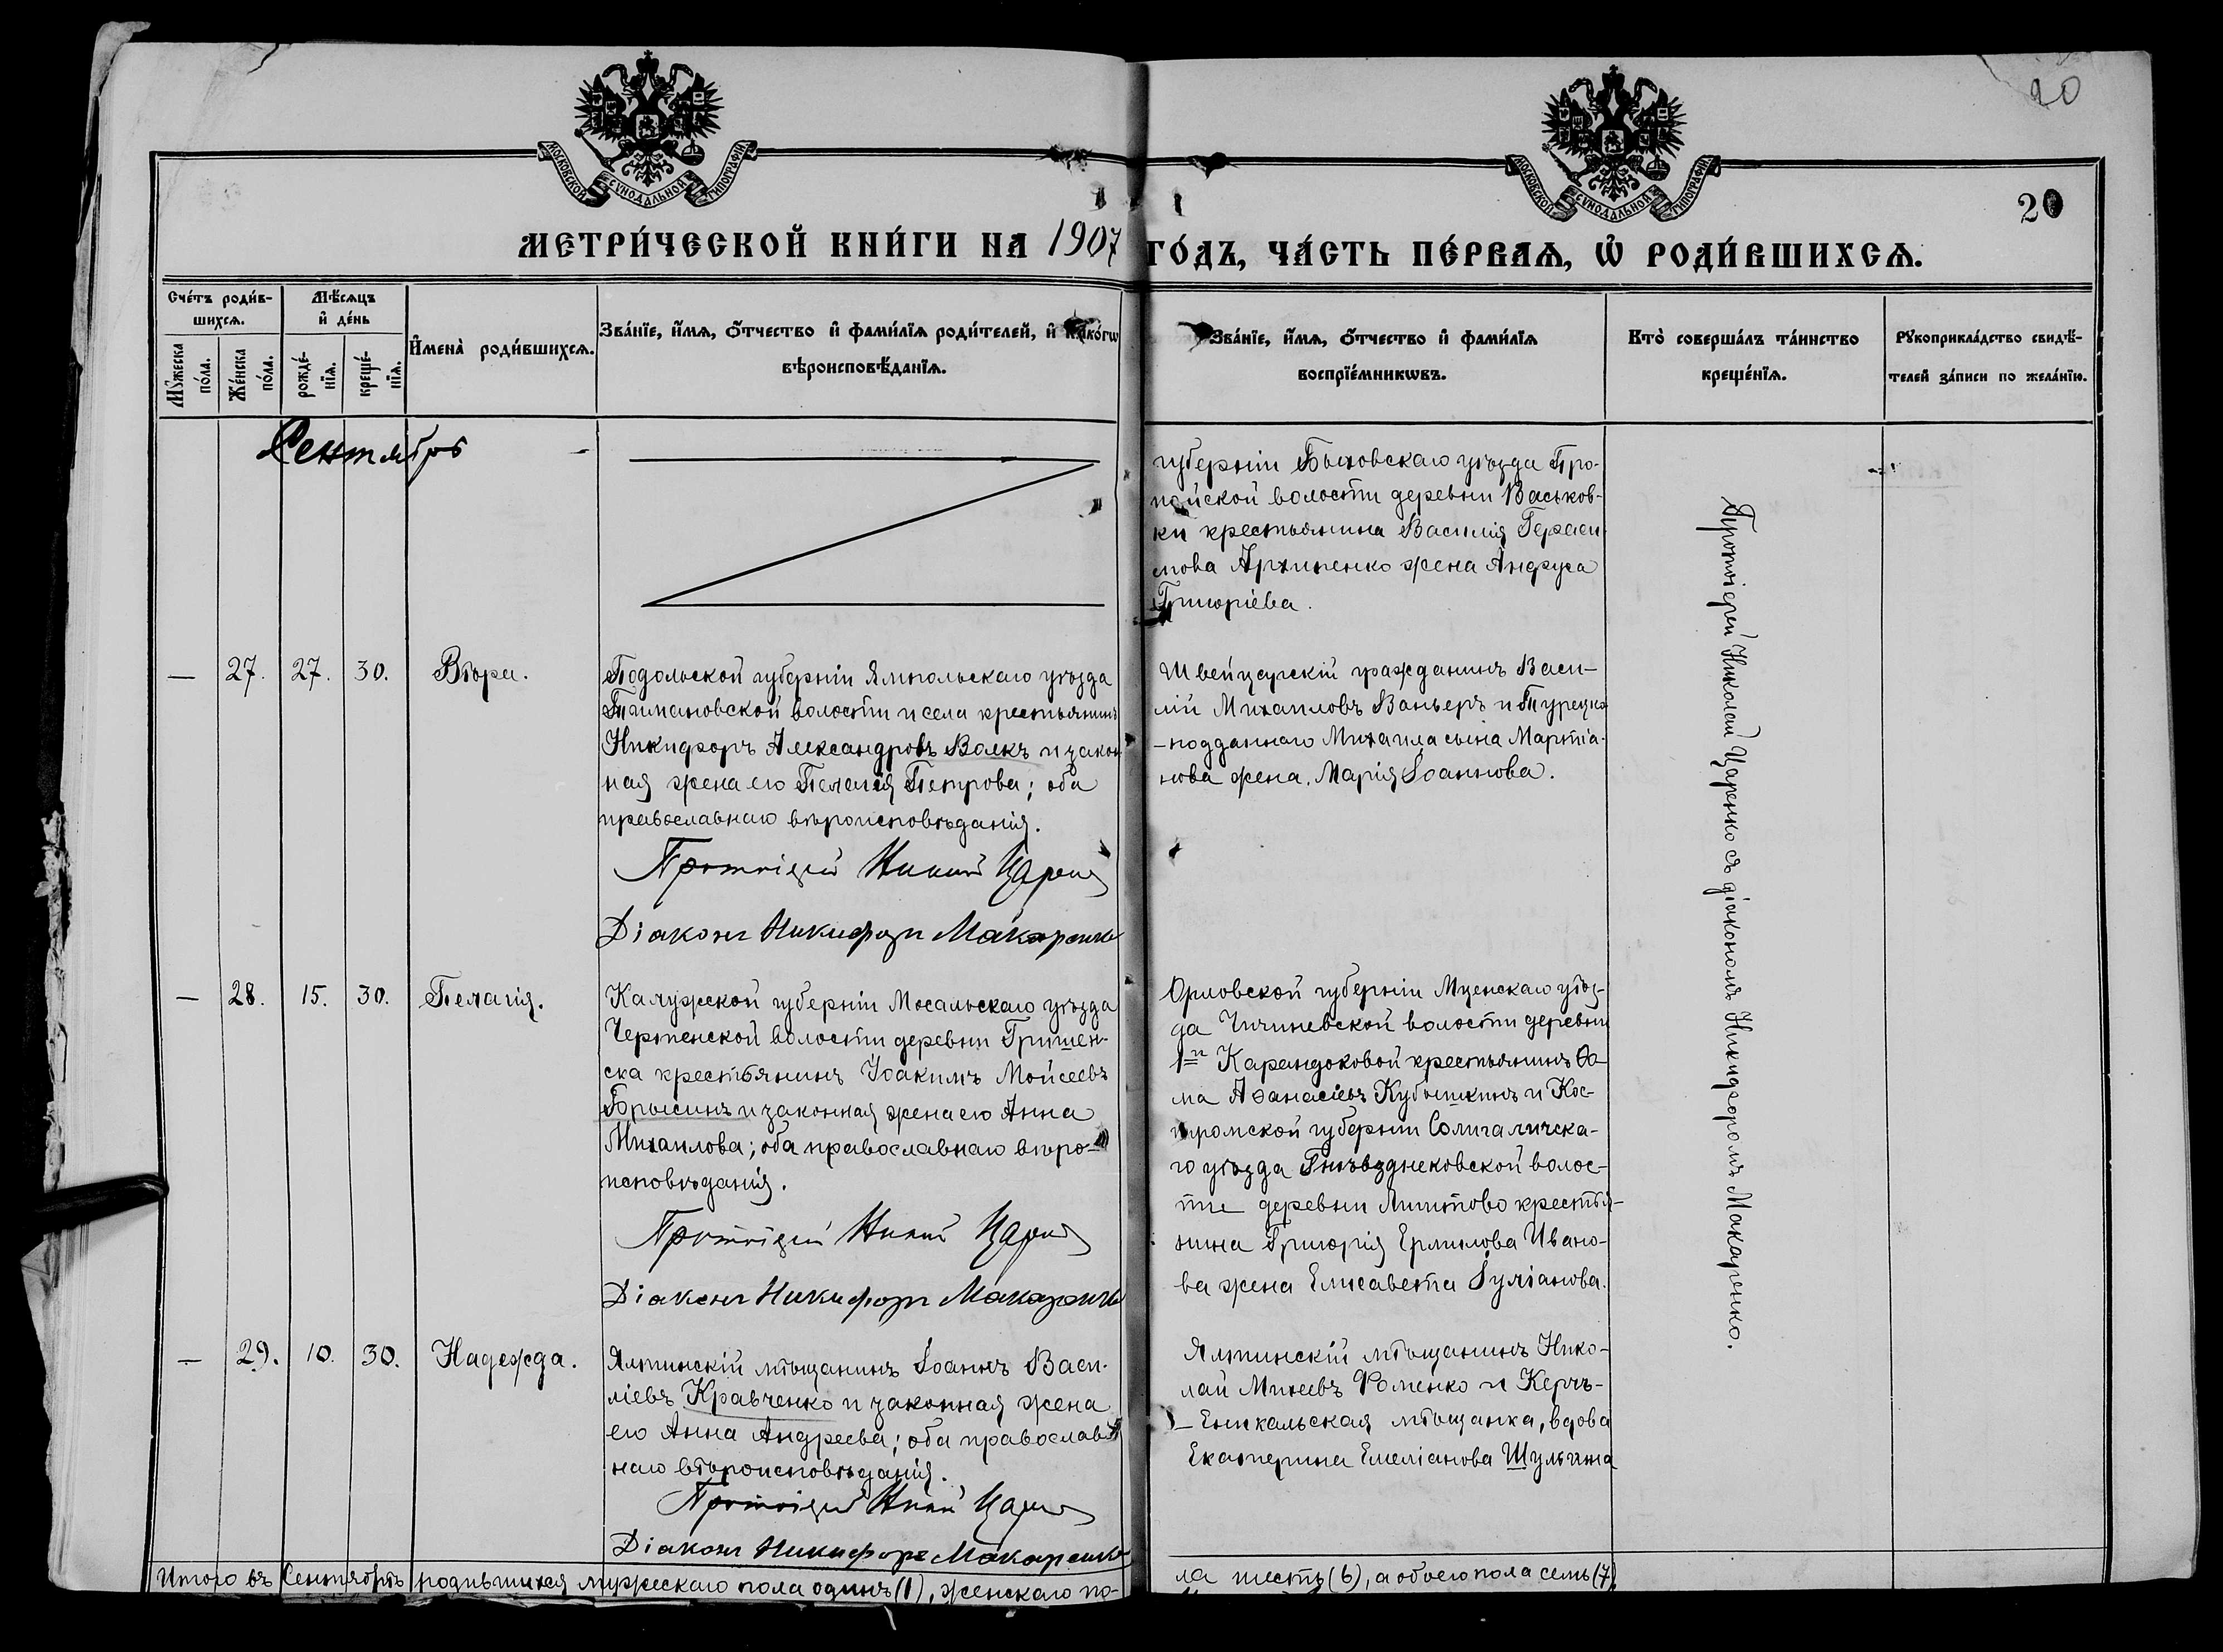 20
МОСКОВСКОЙ СУНОДАЛЬНОЙ ТИПОГРАФІИ
МОСКОВСКОЙ СУНОДАЛЬНОЙ ТИПОГРАФІИ
20
МЕТРИ́ЧЕСКОЙ КНИ́ГИ НА 1907 ГО́ДЪ, ЧА́СТЬ ПЕ́РВАѦ, Ѡ҆ РОДИ́ВШИХСѦ.
Сче́тъ роди́в-
шихсѧ.
Мѣ́сѧцъ
и҆ де́нь
Мꙋ́жеска по́ла.
Же́нска по́ла.
рожде́-
нїѧ.
креще́-
нїѧ.
И҆мена̀ роди́вшихсѧ.
Зва́нїе, и҆́мѧ, ѻ҆́тчество и҆ фами́лїѧ роди́телей, и҆ како́гѡ
вѣроисповѣ́данїѧ.
Зва́нїе, и҆́мѧ, ѻ҆́тчество и҆ фами́лїѧ
воспрїе́мникѡвъ.
Кто̀ соверша́лъ та́инство
креще́нїѧ.
Рꙋкоприкла́дство свидѣ́-
телей за́писи по жела́нїю.
Сентябрь
губерніи Быховскаго уѣзда Про-
пойской волости деревни Васьков-
ки крестьянина Василія Гераси-
мова Архипенко жена Анфуса
Григоріева.
— 27. 27. 30. Вѣра.
Подольской губерніи Ямпольскаго уѣзда
Тимановской волости и села крестьянинъ
Никифоръ Александровъ Волкъ и закон-
ная жена его Пелагія Петрова; оба
православнаго вѣроисповѣданія.
Протоіерей Николай Царенко
Діаконъ Никифоръ Макаренко
Швейцарскій гражданинъ Васи-
лій Михаиловъ Ваньеръ и Турецко
-подданнаго Михаила сына Мартіа-
нова жена, Марія Іоаннова.
— 28. 15. 30. Пелагія.
Калужской губерніи Мосальскаго уѣзда
Чертенской волости деревни Гришен-
ска крестьянинъ Іоакимъ Мойсеевъ
Брысинъ и законная жена его Анна
Михаилова; оба православнаго вѣро-
исповѣданія.
Протоіерей Николай Царенко
Діаконъ Никифоръ Макаренко
Орловской губерніи Мценскаго уѣз-
да Чичиневской волости деревни
1й Карандоковой крестьянинъ Ѳо-
ма Аѳанасіевъ Кубышкинъ и Кос-
тромской губерніи Солигаличска-
го уѣзда волос-
ти деревни крестья-
нина Григорія Ермилова Ивано-
ва жена Елисавета Іуліанова.
— 29. 10. 30. Надежда.
Ялтинскій мѣщанинъ Іоаннъ Васи-
ліевъ Кравченко и законная жена
его Анна Андреева; оба православ-
наго вѣроисповѣданія.
Протоіерей Николай Царенко
Діаконъ Никифоръ Макаренко
Ялтинскій мѣщанинъ Нико-
лай Михеевъ Фоменко и Керчь-
-Еникальская мѣщанка, вдова
Екатерина Емеліанова Шульгина
Протоіерей Николай Царенко съ діакономъ Никифоромъ Макаренко.
Итого въ Сентябрѣ родившихся мужескаго пола одинъ (1), женскаго по-
ла шесть (6), а обоего пола семь (7)